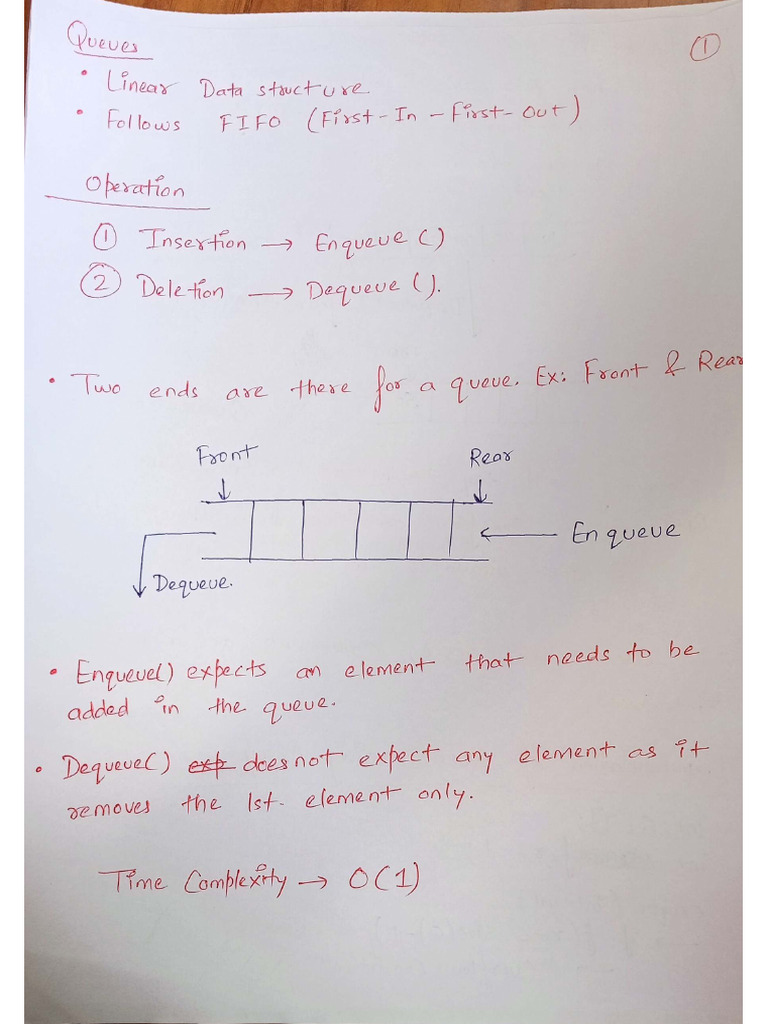 Queues
①
• Linear Data structure
• Follows FIFO (First-In-First-Out)
Operation
① Insertion → Enqueue ()
② Deletion → Dequeue ().
• Two ends are there for a queue. Ex: Front & Rear
Front Rear
Enqueue
Dequeue.
• Enqueue() expects an element that needs to be
added in the queue.
• Dequeue() exp does not expect any element as it
removes the 1st. element only.
Time Complexity → O(1)